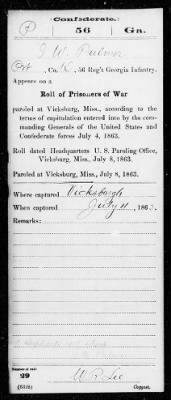 Confederate.
P 56 Ga.
J. W. Palmer
Pvt, Co. K, 56 Reg't Georgia Infantry.
Appears on a
Roll of Prisoners of War
paroled at Vicksburg, Miss., according to the
terms of capitulation entered into by the com-
manding Generals of the United States and
Confederate forces July 4, 1863.
Roll dated Headquarters U. S. Paroling Office,
Vicksburg, Miss., July 8, 1863.
Paroled at Vicksburg, Miss., July 8, 1863.
Where captured Vicksburgh
When captured July 4, 1863.
Remarks:
Number of roll:
29
W. R. Lee
Copyist.